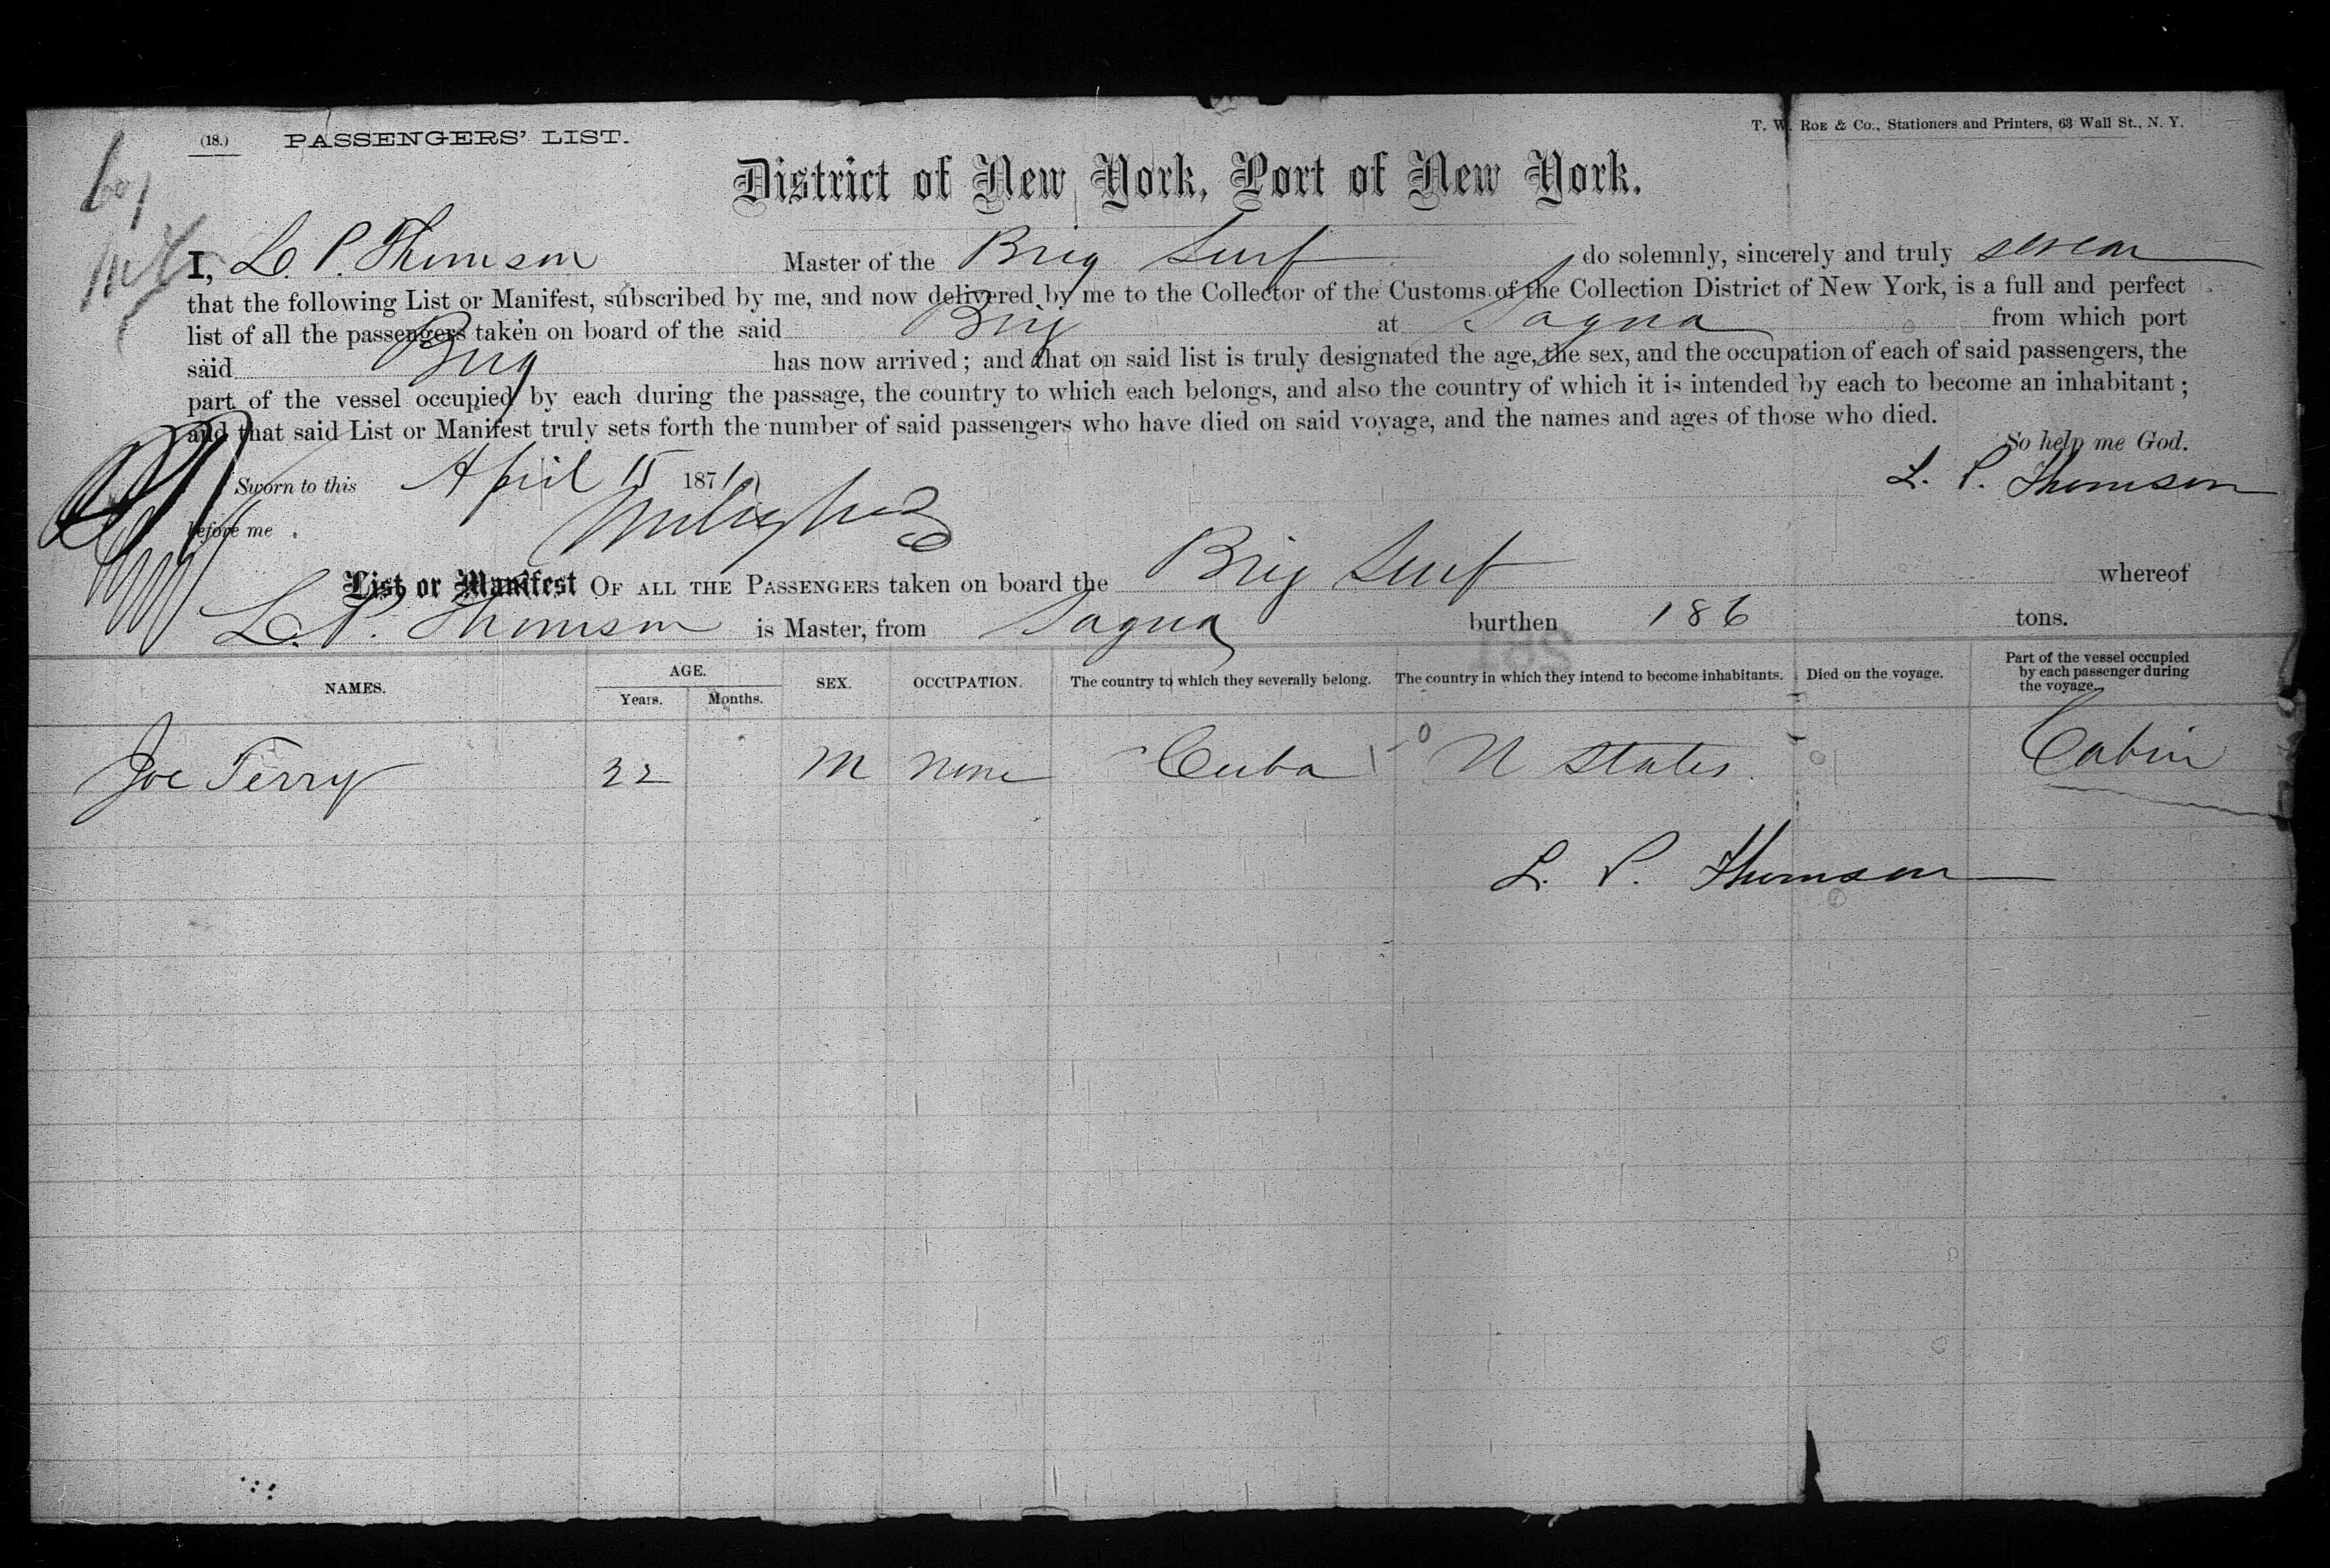 (18.) PASSENGERS' LIST.
T. W. ROE & Co., Stationers and Printers, 63 Wall St., N. Y.
District of New York, Port of New York.
I, L. P. Thomson Master of the Brig Surf do solemnly, sincerely and truly swear
that the following List or Manifest, subscribed by me, and now delivered by me to the Collector of the Customs of the Collection District of New York, is a full and perfect
list of all the passengers taken on board of the said Brig at Sagua from which port
said Brig has now arrived; and that on said list is truly designated the age, the sex, and the occupation of each of said passengers, the
part of the vessel occupied by each during the passage, the country to which each belongs, and also the country of which it is intended by each to become an inhabitant;
and that said List or Manifest truly sets forth the number of said passengers who have died on said voyage, and the names and ages of those who died.
So help me God.
Sworn to this April 15 1871 L. P. Thomson
before me
List or Manifest OF ALL THE PASSENGERS taken on board the Brig Surf whereof
L. P. Thomson is Master, from Sagua burthen 186 tons.
NAMES. AGE. Years. Months. SEX. OCCUPATION. The country to which they severally belong. The country in which they intend to become inhabitants. Died on the voyage. Part of the vessel occupied by each passenger during the voyage.
Joe Terry 22 M None Cuba U States Cabin
L. P. Thomson